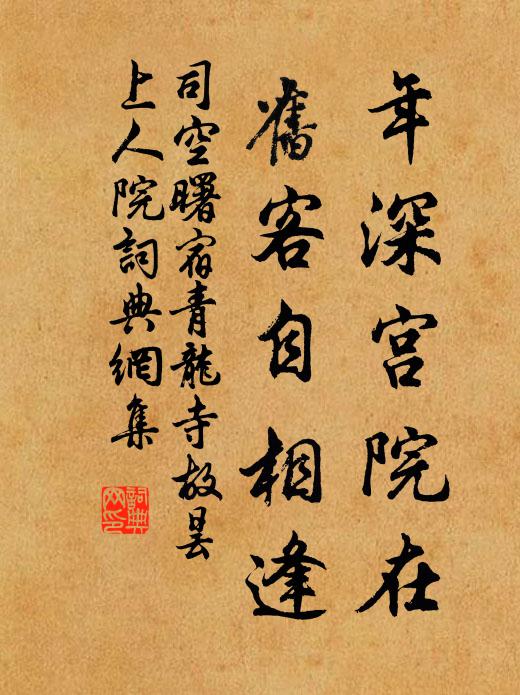 年深宫院在
舊客自相逢
司空曙宿青龍寺故曇
上人院詞典網集
詞典網印